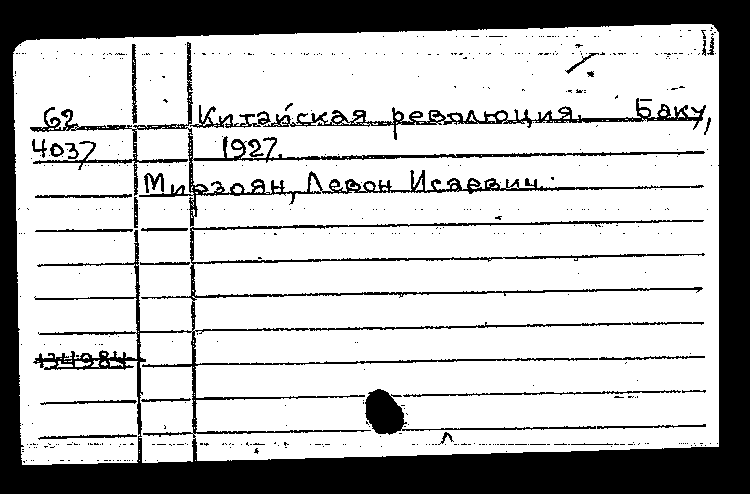 62 Китайская революция. Баку,
4037 1927.
Мирзоян, Левон Исаевич.
134984